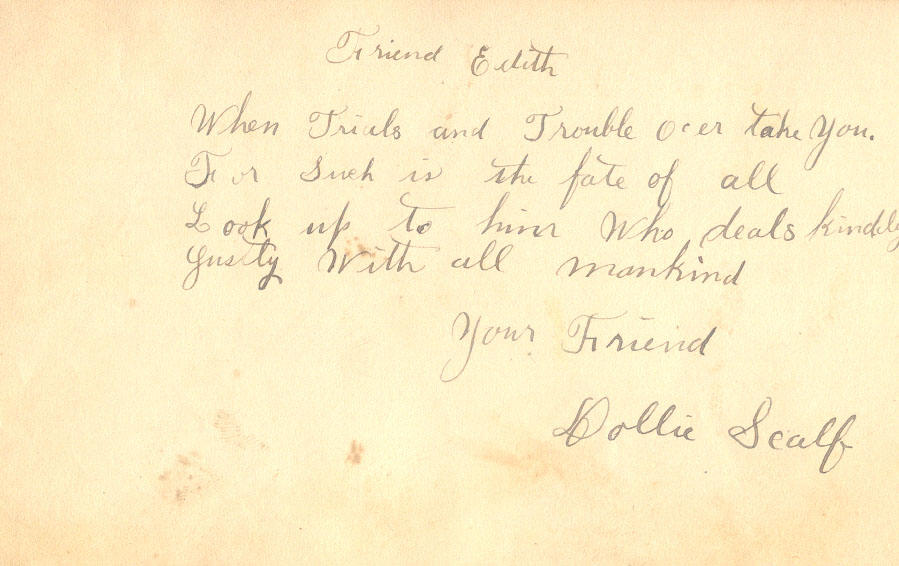 Friend Edith
When Trials and Trouble Over take You.
For Such is the fate of all
Look up to him Who deals kindly
Justly With all mankind
Your Friend
Dollie Scalf